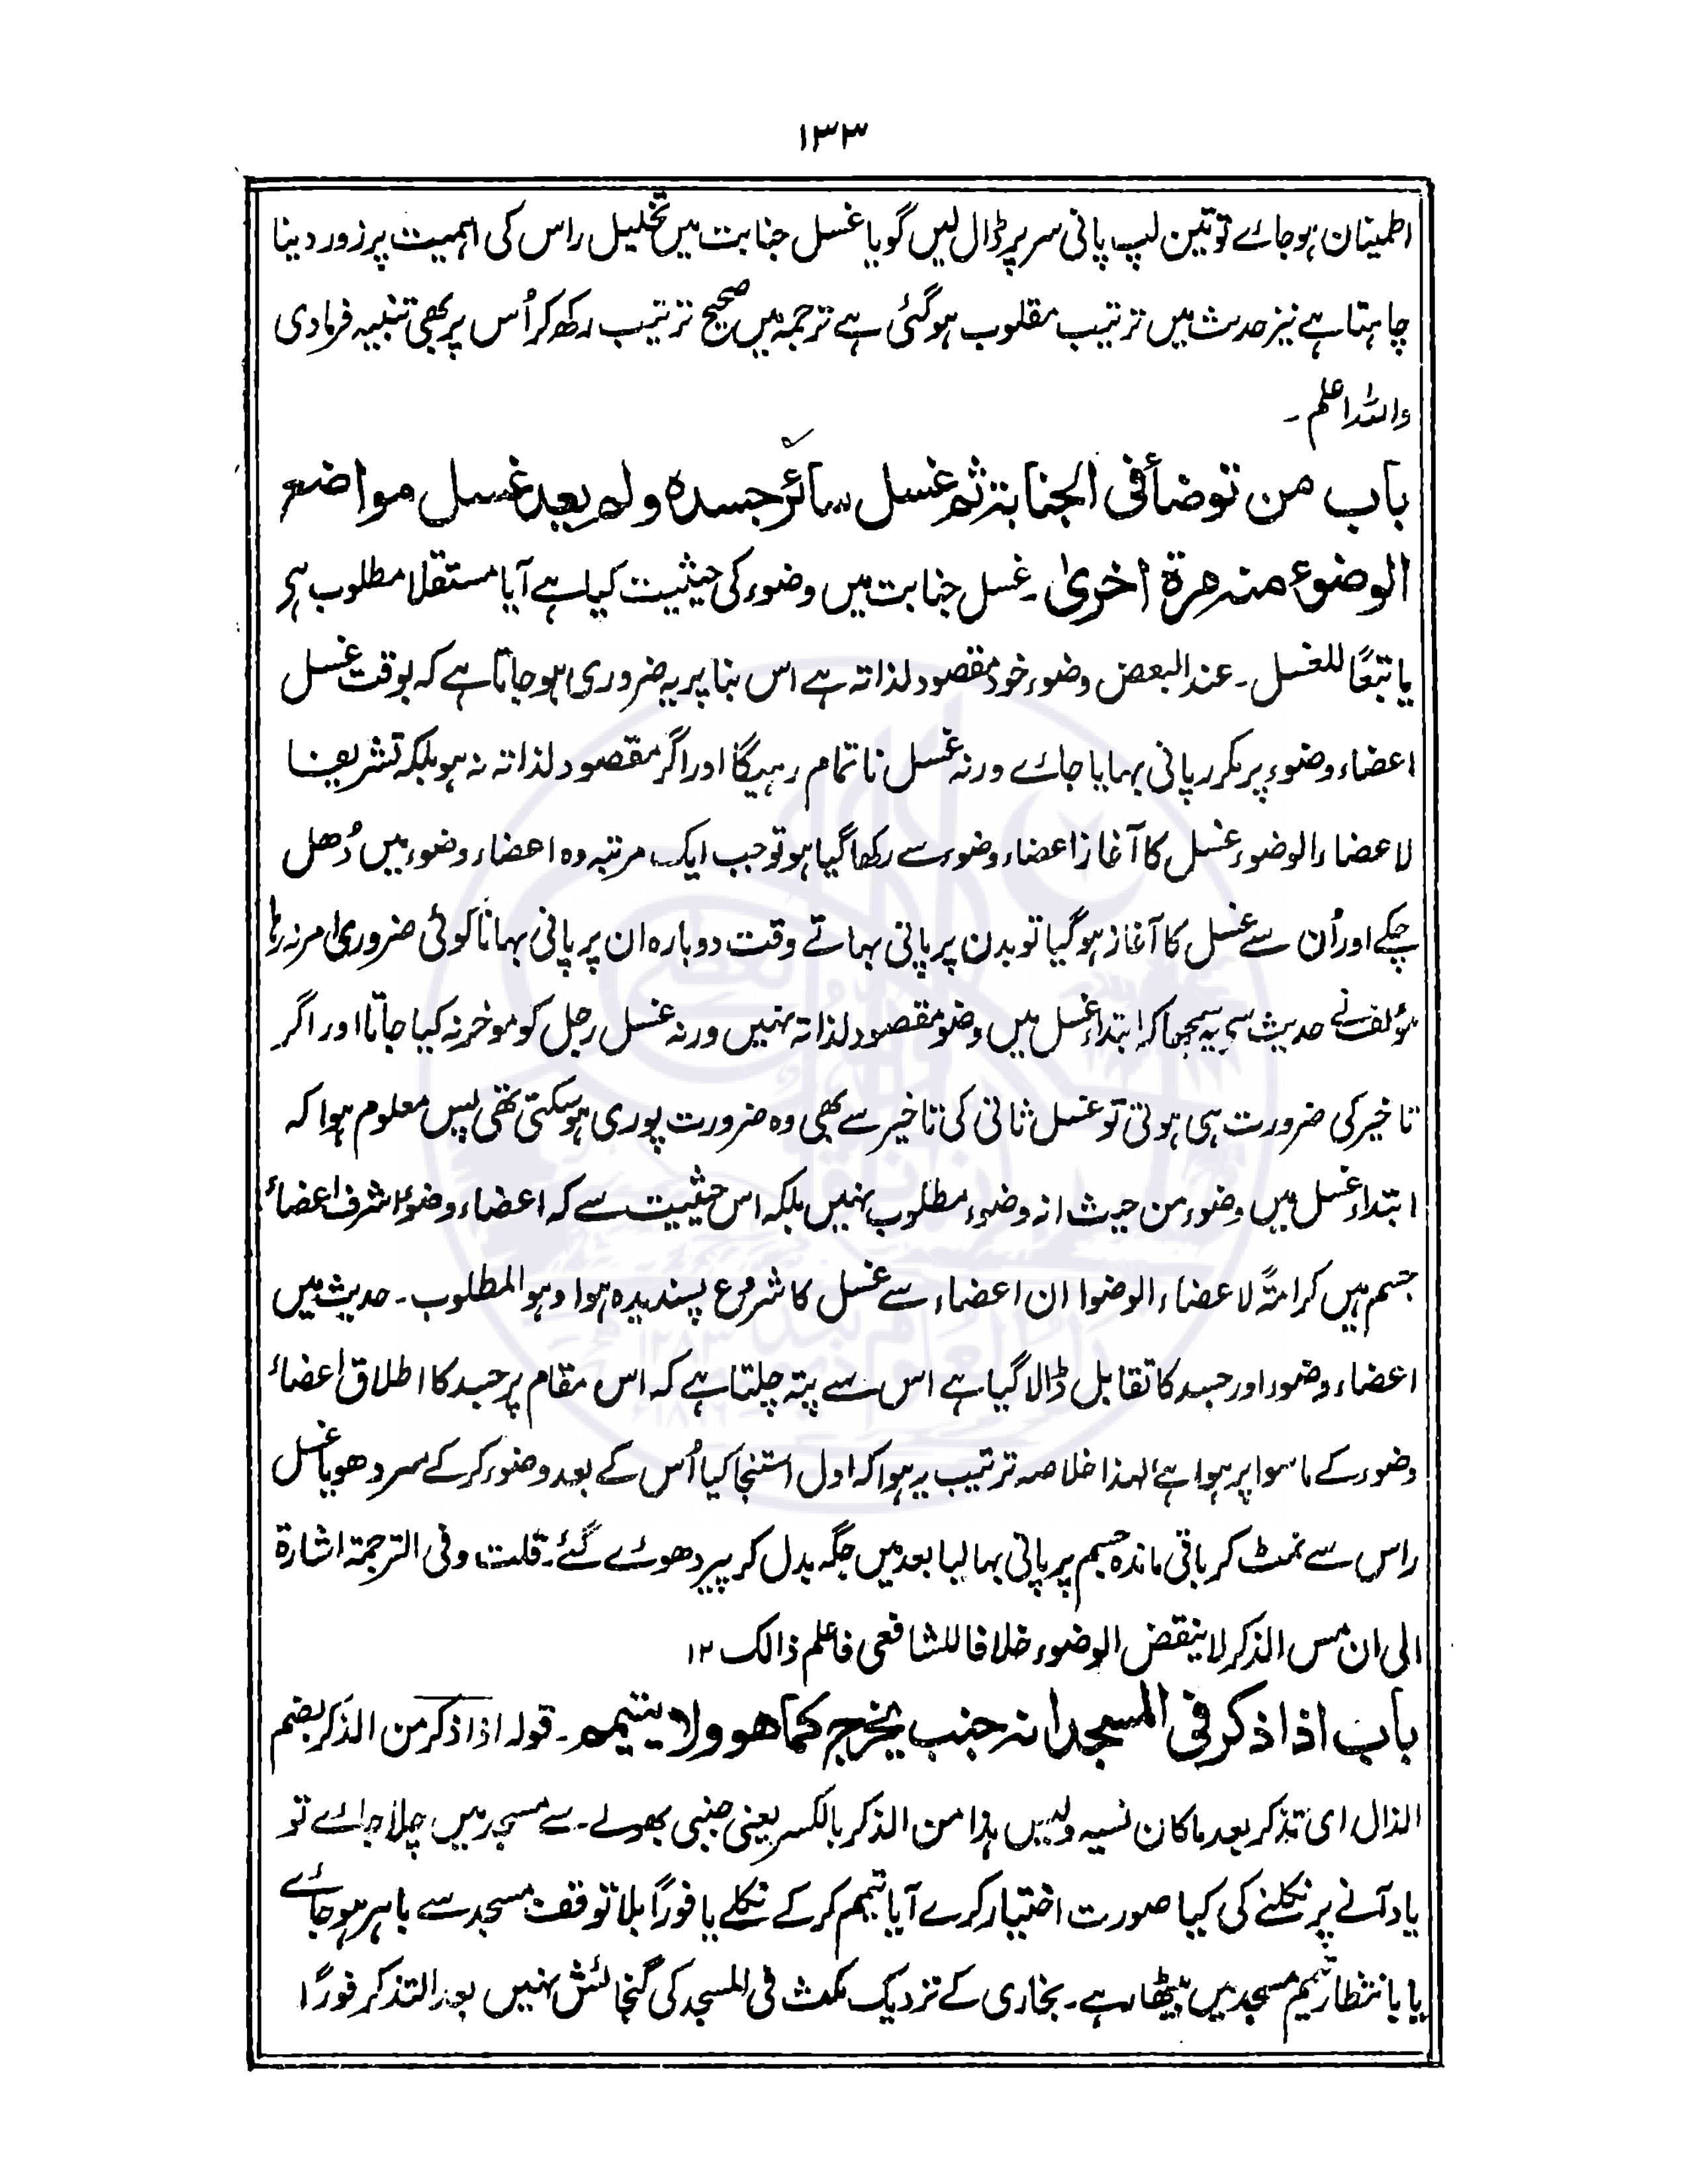 ۱۳۳
اطمینان ہوجائے تو تین لپ پانی سر پر ڈال لیں گویا غسل جنابت میں تخلیل راس کی اہمیت پر زور دینا
چاہتا ہے نیز حدیث میں ترتیب مقلوب ہوگئی ہے ترجمہ میں صحیح ترتیب رکھ کر اُس پر بھی تنبیہ فرمادی
واللہ اعلم ۔
باب من توضأ فی الجنابۃ ثم غسل سائر جسدہ ولم یعد غسل مواضع
الوضوء منہ مرۃ اخریٰ ۔ غسل جنابت میں وضوء کی حیثیت کیا ہے آیا مستقلا مطلوب ہی
یا تبعًا للغسل ۔ عند البعض وضوء خود مقصود لذاتہ ہے اس بنا پر یہ ضروری ہوجاتا ہے کہ بوقت غسل
اعضاء وضوء پر مکرر پانی بہایا جائے ورنہ غسل ناتمام رہیگا اور اگر مقصود لذاتہ نہ ہو بلکہ تشریفا
لاعضاء الوضوء غسل کا آغاز اعضاء وضوء سے رکھا گیا ہو تو جب ایک مرتبہ وہ اعضاء وضوء میں دُھل
چکے اور اُن سے غسل کا آغاز ہوگیا تو بدن پر پانی بہاتے وقت دوبارہ ان پر پانی بہانا کوئی ضروری امر نہ رہا
مؤلف نے حدیث سی یہ سمجھا کہ ابتداء غسل میں وضو مقصود لذاتہ نہیں ورنہ غسل رجل کو موخر نہ کیا جاتا اور اگر
تاخیر کی ضرورت ہی ہوتی تو غسل ثانی کی تاخیر سے بھی وہ ضرورت پوری ہوسکتی تھی پس معلوم ہوا کہ
ابتداء غسل میں وضوء من حیث انہ وضوء مطلوب نہیں بلکہ اس حیثیت سے کہ اعضاء وضوء اشرف اعضائے
جسم ہیں کرامۃً لاعضاء الوضوا ان اعضاء سے غسل کا شروع پسندیدہ ہوا وہو المطلوب ۔ حدیث میں
اعضاء وضوء اور جسد کا تقابل ڈالا گیا ہے اس سے پتہ چلتا ہے کہ اس مقام پر جسد کا اطلاق اعضائے
وضوء کے ماسوا پر ہوا ہے لہذا خلاصہ ترتیب یہ ہوا کہ اول استنجا کیا اُس کے بعد وضوء کرکے سر دھویا غسل
راس سے نمٹ کر باقی ماندہ جسم پر پانی بہا لیا بعد میں جگہ بدل کر پیر دھوئے گئے ۔ قلت وفی الترجمۃ اشارۃ
الی ان مس الذکر لا ینقض الوضوء خلافا للشافعی فاعلم ذالک ۱۲
باب اذا ذکر فی المسجد انہ جنب یخرج کما ھو ولا یتیمم ۔ قولہ اذا ذکر من الذکر بضم
الذال ای تذکر بعد ما کان نسیہ ولیس ہذا من الذکر بالکسر یعنی جنبی بھولے سے مسجد میں چلا جائے تو
یاد آنے پر نکلنے کی کیا صورت اختیار کرے آیا تیمم کرکے نکلے یا فورًا بلا توقف مسجد سے باہر ہوجائے
یا بانتظار تیمم مسجد میں بیٹھا رہے ۔ بخاری کے نزدیک مکث فی المسجد کی گنجائش نہیں بعد التذکر فورًا